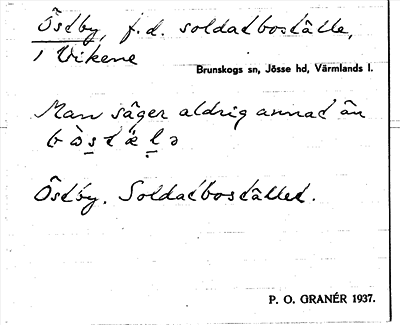 Östby, f.d. soldatboställe,
i Vikene
Brunskogs sn, Jösse hd, Värmlands l.
Man säger aldrig annat än
Östby. Soldatbostället.
P. O. GRANÉR 1937.